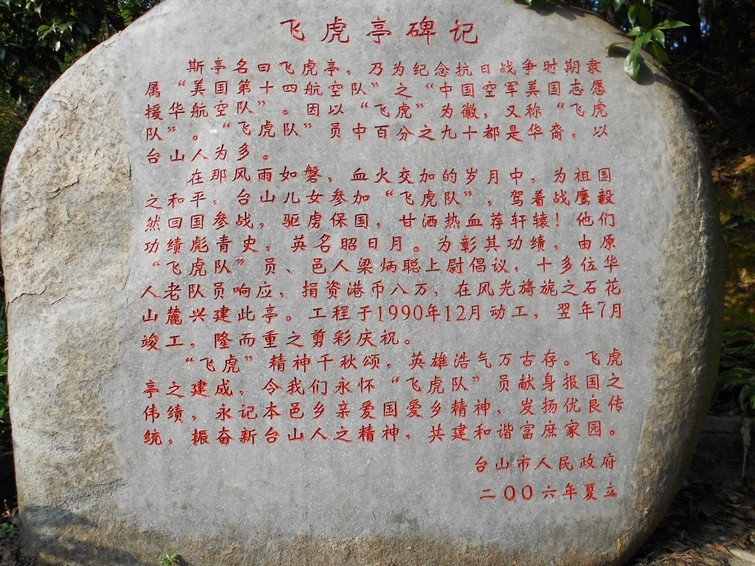 飞虎亭碑记
斯亭名曰飞虎亭，乃为纪念抗日战争时期隶
属“美国第十四航空队”之“中国空军美国志愿
援华航空队”。因以“飞虎”为徽，又称“飞虎
队”。“飞虎队”员中百分之九十都是华裔，以
台山人为多。
在那风雨如磐，血火交加的岁月中，为祖国
之和平，台山儿女参加“飞虎队”，驾着战鹰毅
然回国参战，驱虏保国，甘洒热血荐轩辕！他们
功绩彪青史，英名昭日月。为彰其功绩，由原
“飞虎队”员、邑人梁炳聪上尉倡议，十多位华
人老队员响应，捐资港币八万，在风光旖旎之石花
山麓兴建此亭。工程于1990年12月动工，翌年7月
竣工，隆而重之剪彩庆祝。
“飞虎”精神千秋颂，英雄浩气万古存。飞虎
亭之建成，令我们永怀“飞虎队”员献身报国之
伟绩，永记本邑乡亲爱国爱乡精神，发扬优良传
统，振奋新台山人之精神，共建和谐富庶家园。
台山市人民政府
二〇〇六年夏立